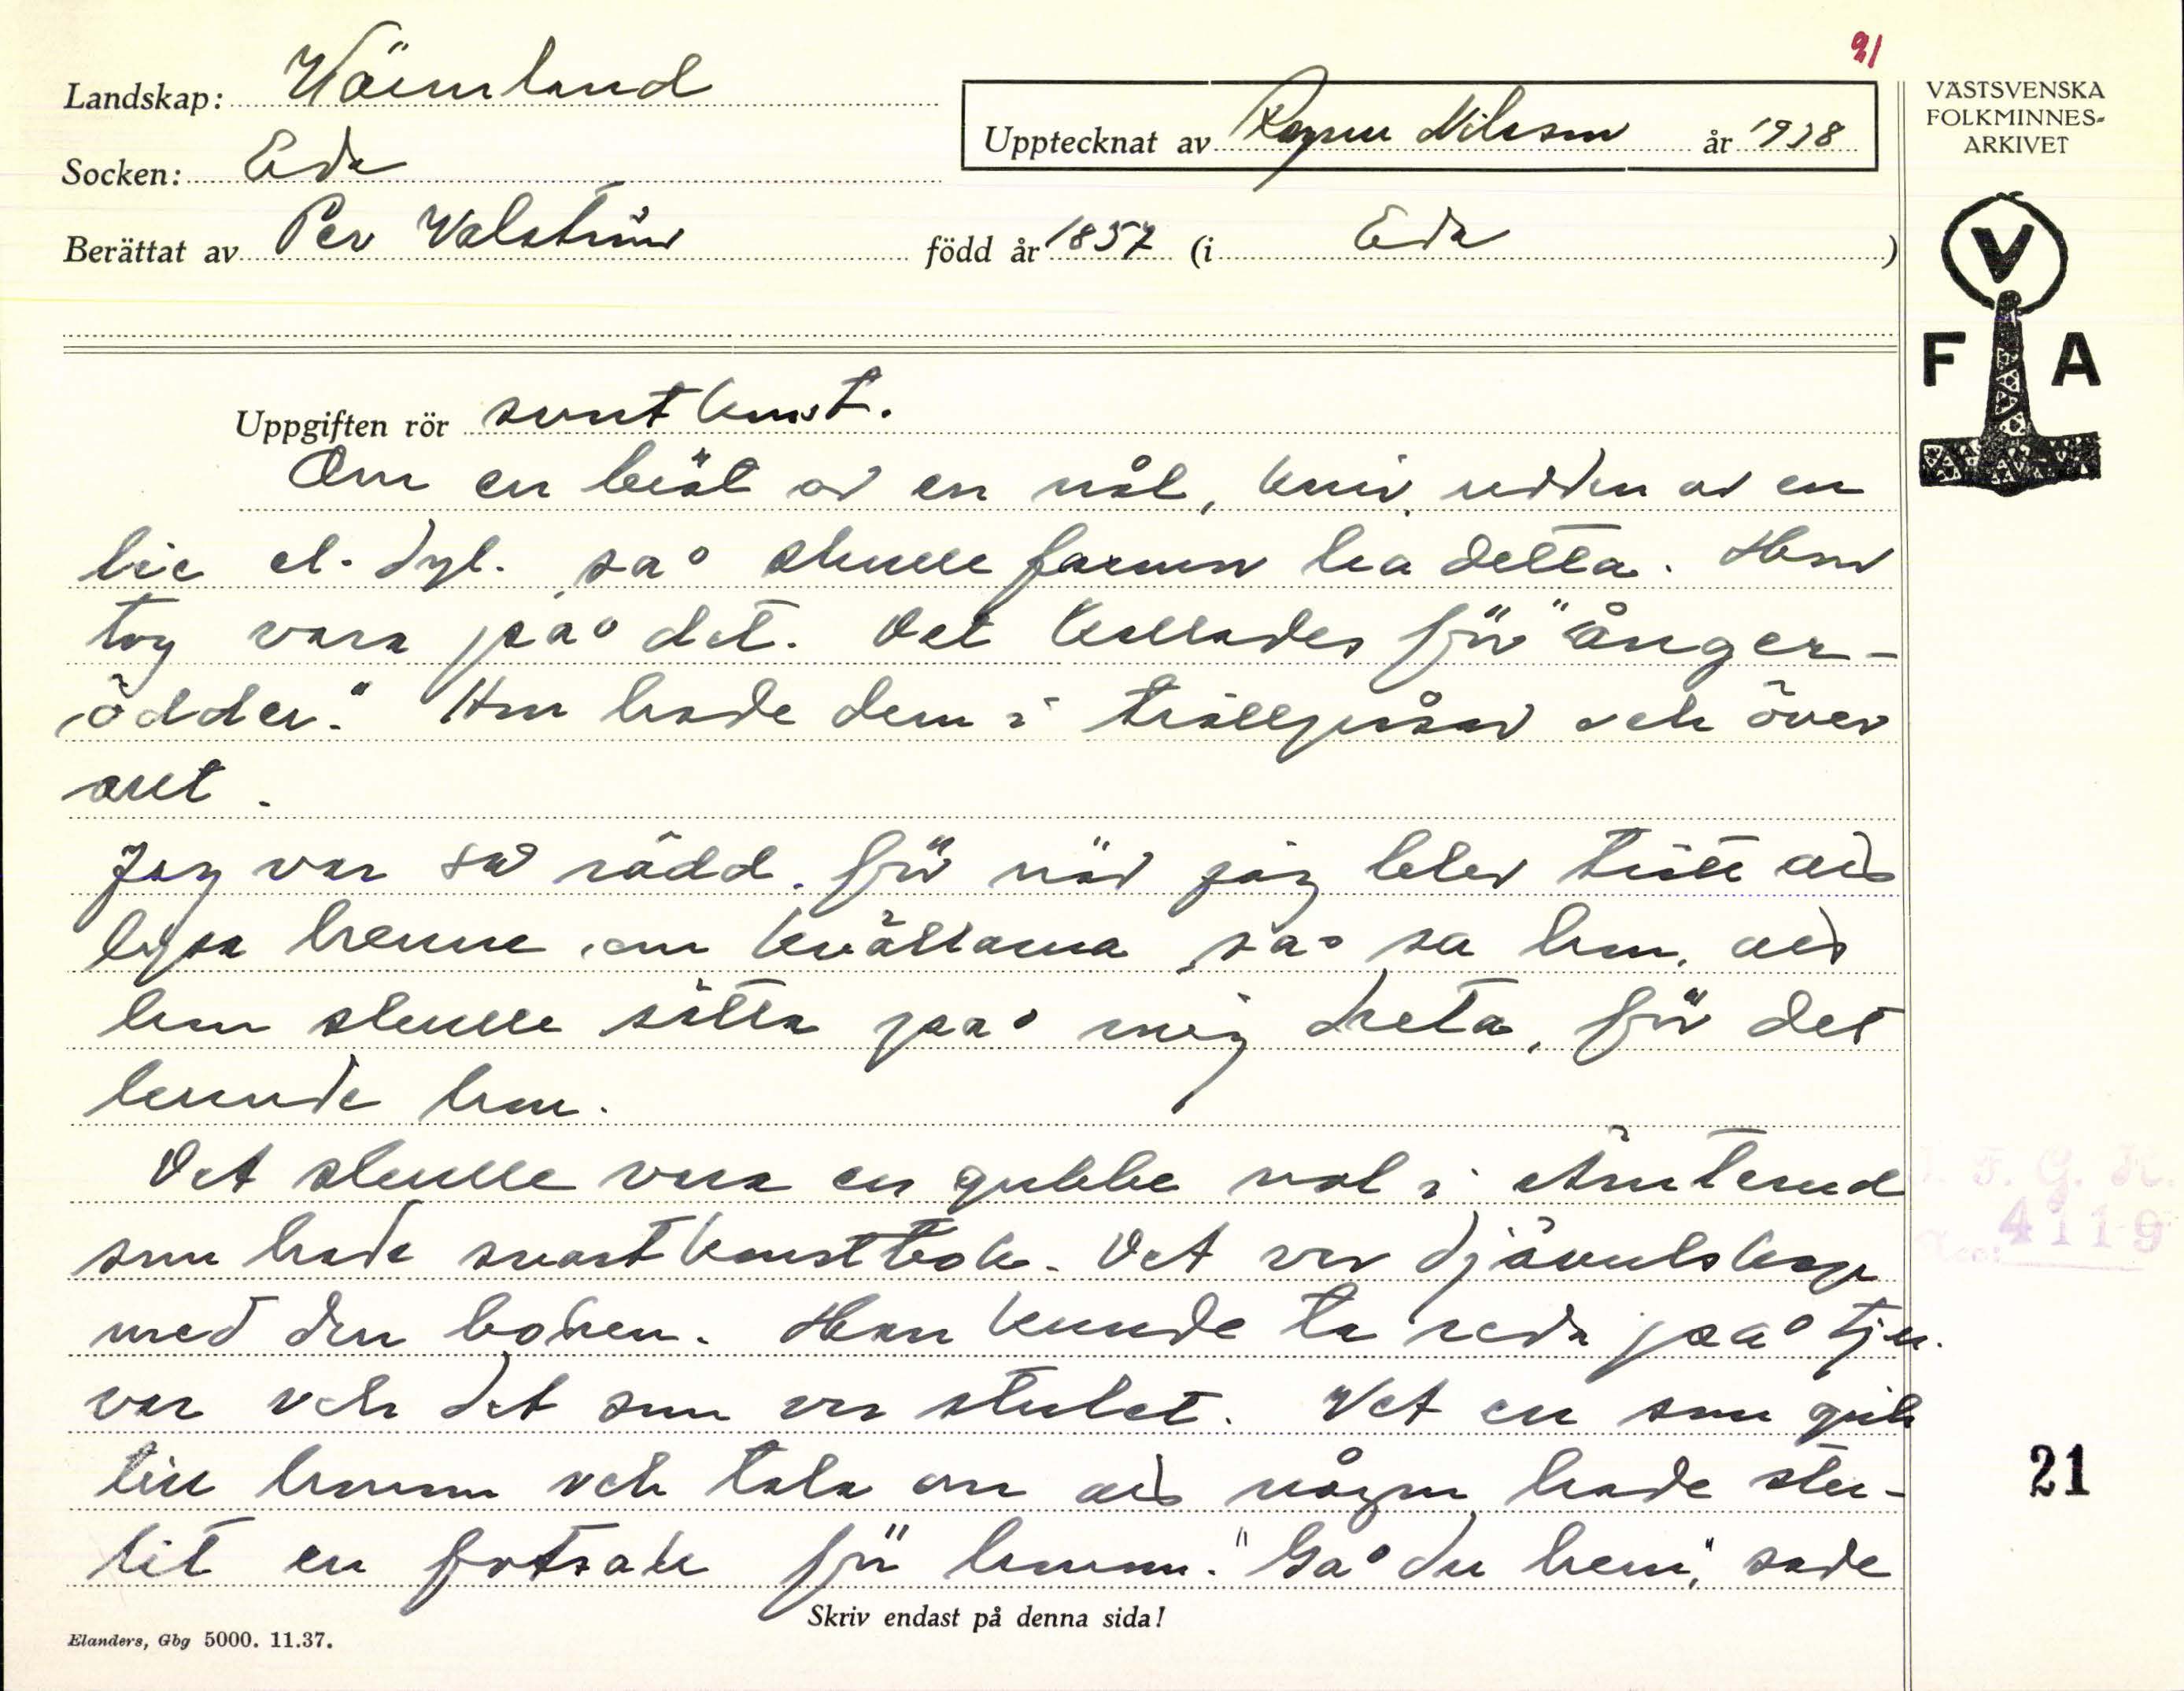 91
Landskap: Värmland
Upptecknat av Ragnar Nilsson år 1938
VÄSTSVENSKA
FOLKMINNES-
ARKIVET
Socken: Eda
Berättat av Per Valström född år 1857 (i Eda )
V
F A
Uppgiften rör svartkonst.
Om en bröt av en nål, kniv, udden av en
lie el. dyl. så skulle farmor ha detta. Hon
tog vara på det. Det kallades för "ånger-
ödder." Hon hade dem i trollpåsar och över
allt.
Jag var så rädd. för när jag blev trött att
lysa henne om kvällarna så sa hon, att
hon skulle sätta på mig dreta, för det
kunde hon.
Det skulle vara en gubbe val i Åmterud
som hade svartkonstbok. Det var djävulskap
med den boken. Han kunde ta reda på tju-
var och det som var stulet. Det en som gick
till honom och tala om att någon hade stu-
lit en fotsack för honom. "Gå du hem", sade
I. F. G. H.
4119
21
Skriv endast på denna sida!
Elanders, Gbg 5000. 11.37.